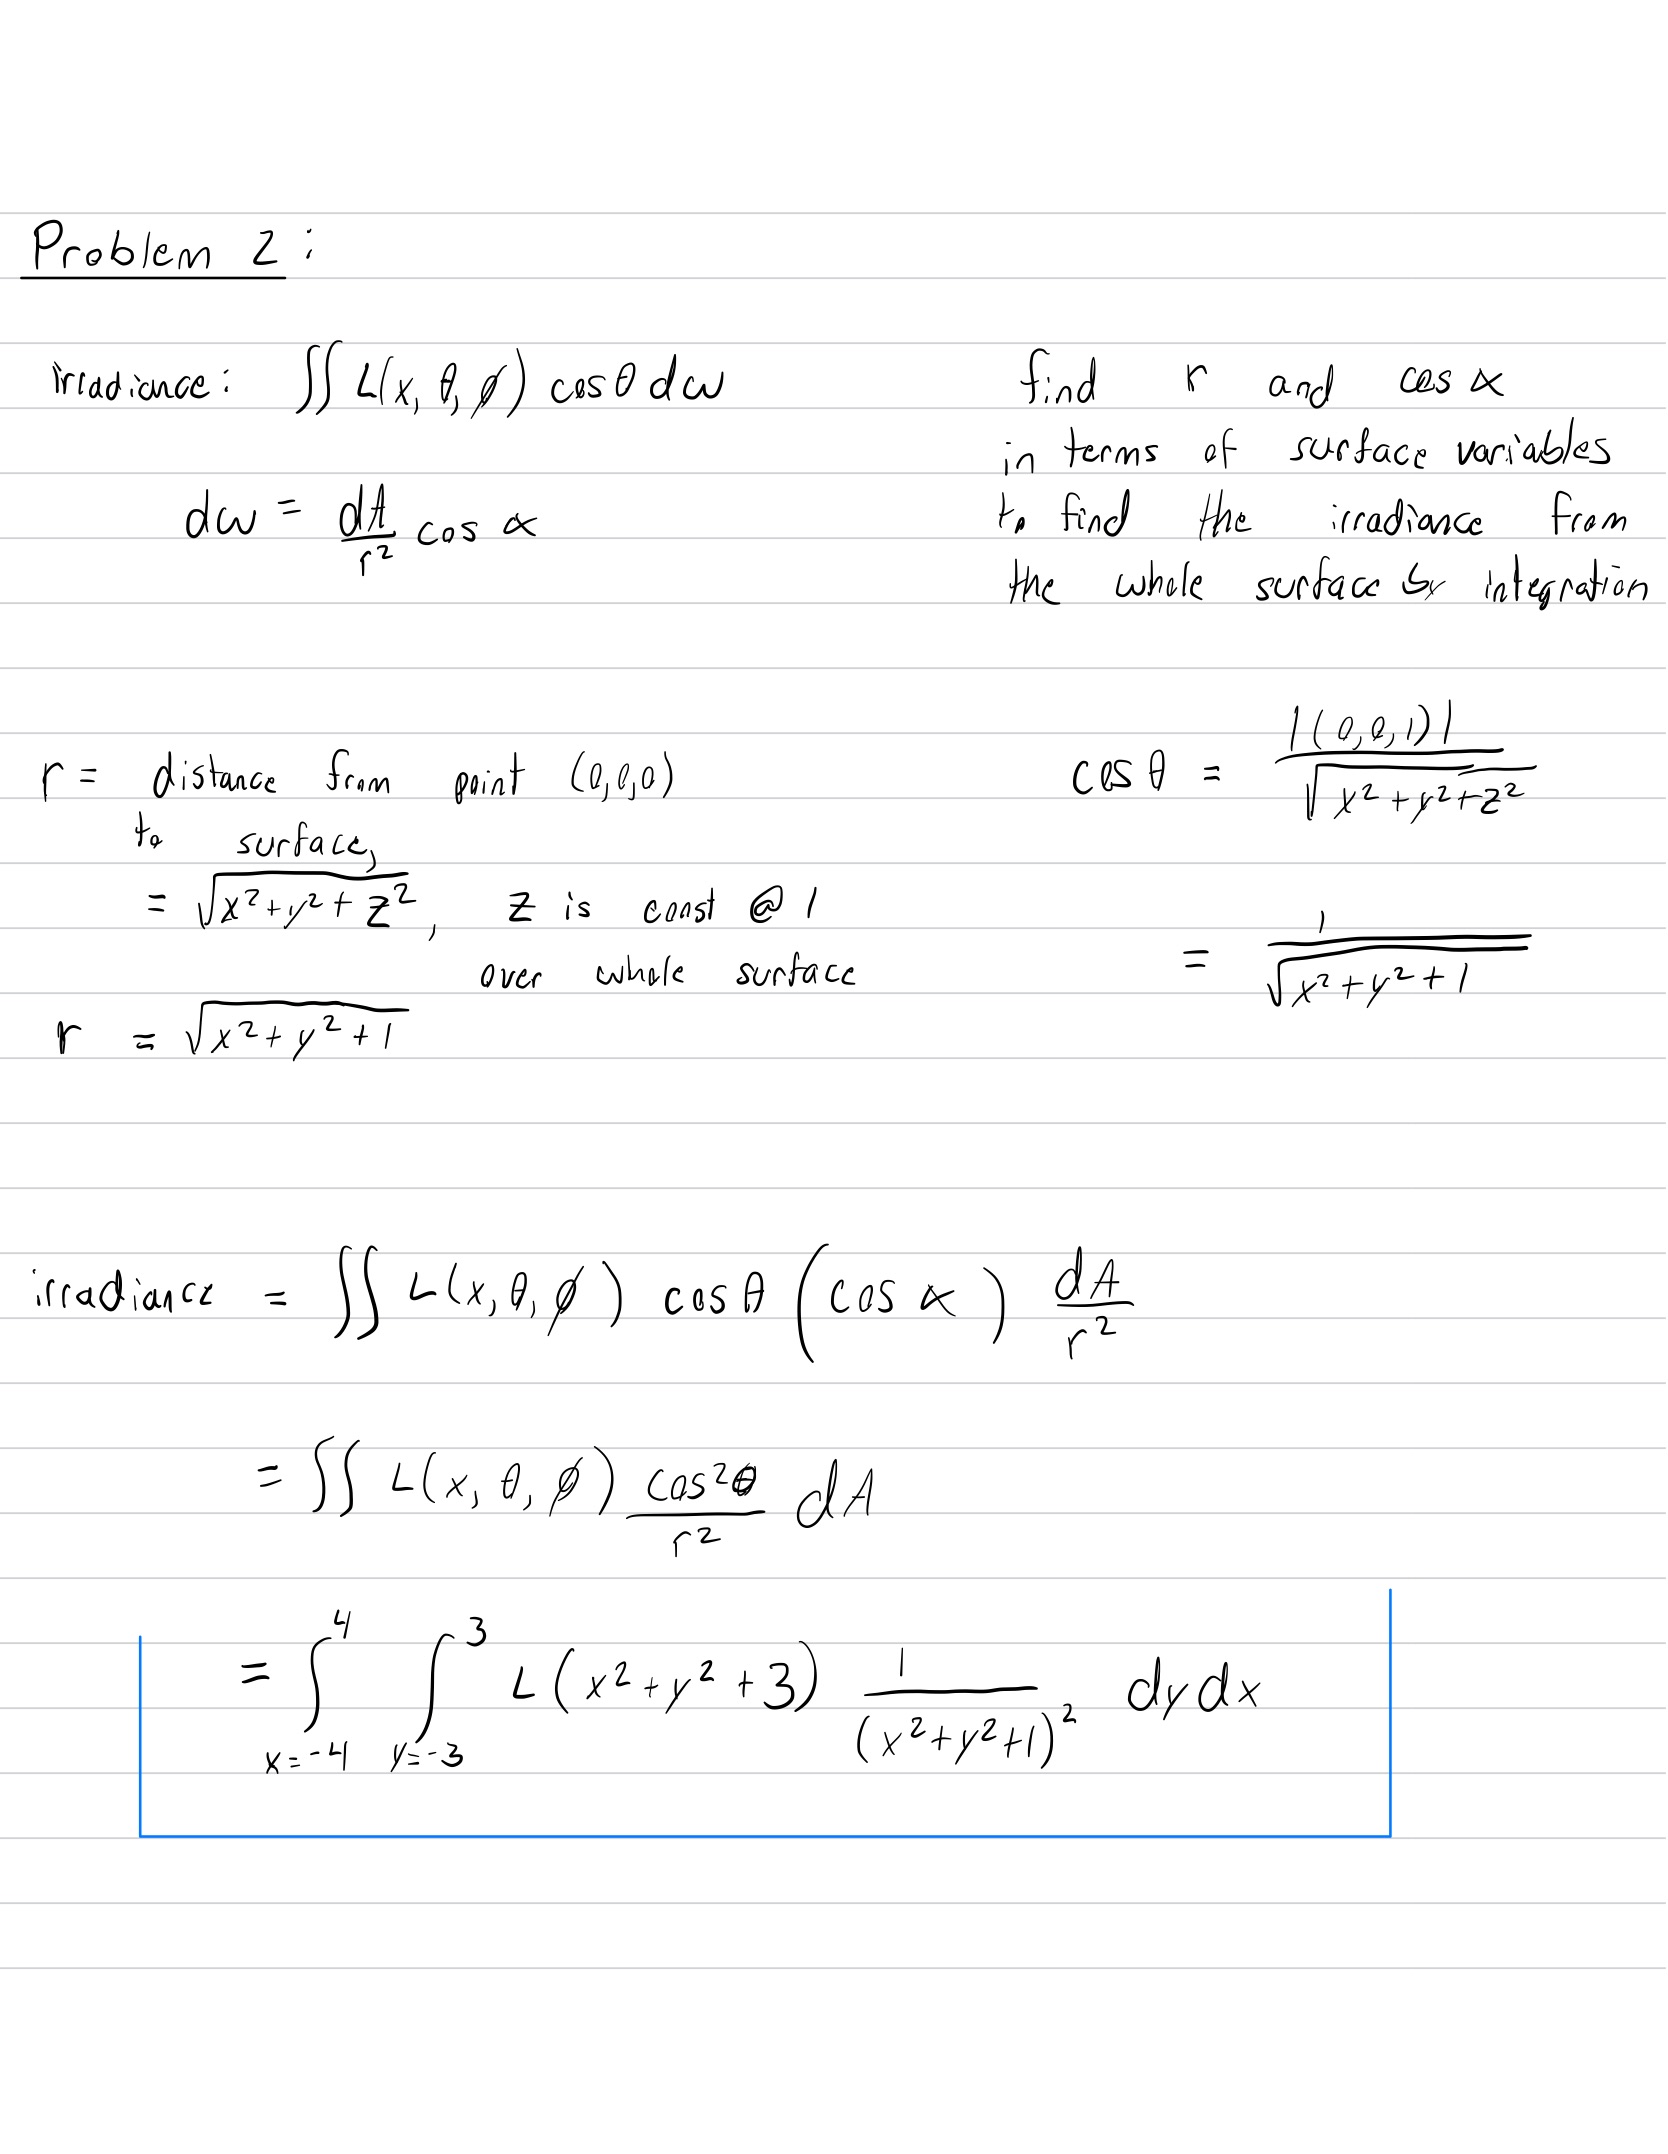 Problem 2:
irradiance: ∬ L(x, θ, ϕ) cosθ dω
dω = dA/r² cos α
find r and cos α
in terms of surface variables
to find the irradiance from
the whole surface by integration
r = distance from point (0,0,0)
to surface,
= √(x²+y²+z²), z is const @ 1
over whole surface
r = √(x²+y²+1)
cos θ = |(0,0,1)| / √(x²+y²+z²)
= 1 / √(x²+y²+1)
irradiance = ∬ L(x, θ, ϕ) cosθ (cos α) dA/r²
= ∬ L(x, θ, ϕ) cos²θ/r² dA
= ∫_{x=-4}^{4} ∫_{y=-3}^{3} L(x²+y²+3) 1/(x²+y²+1)² dy dx